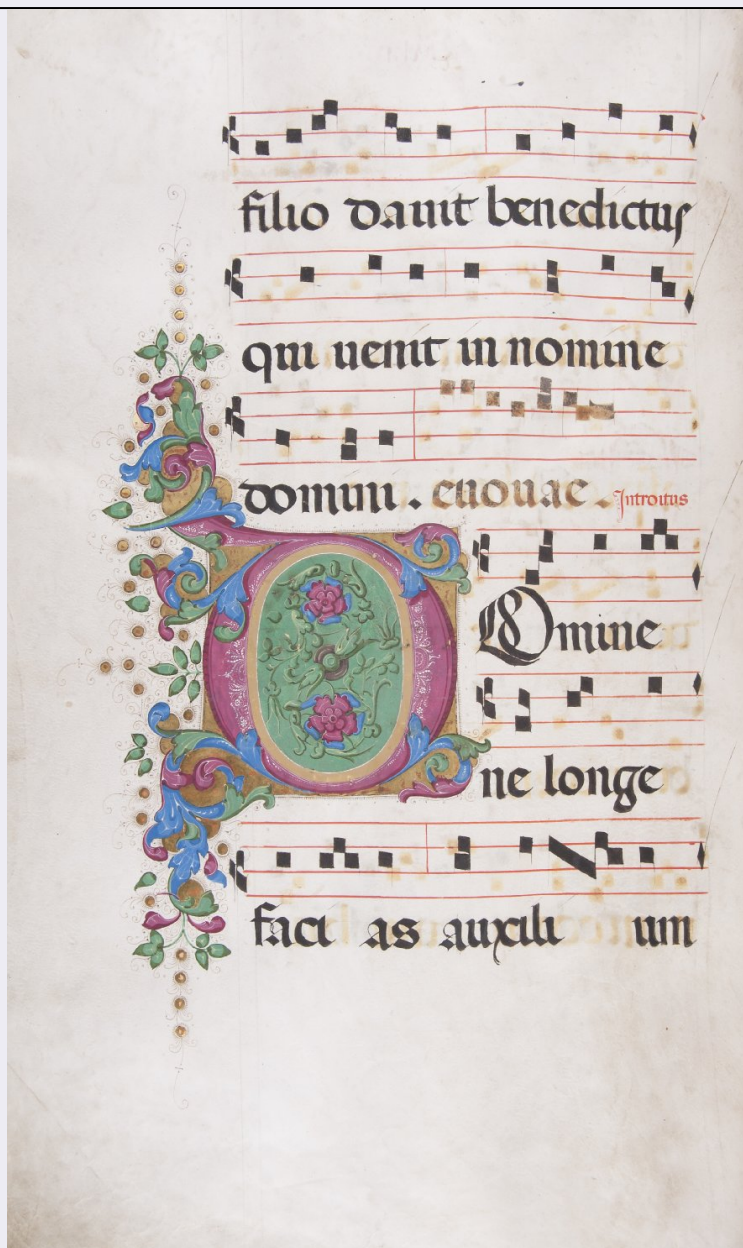 filio dauit benedictus
qui uenit in nomine
domini . euouae . Introitus
Domine
ne longe
faci as auxili um